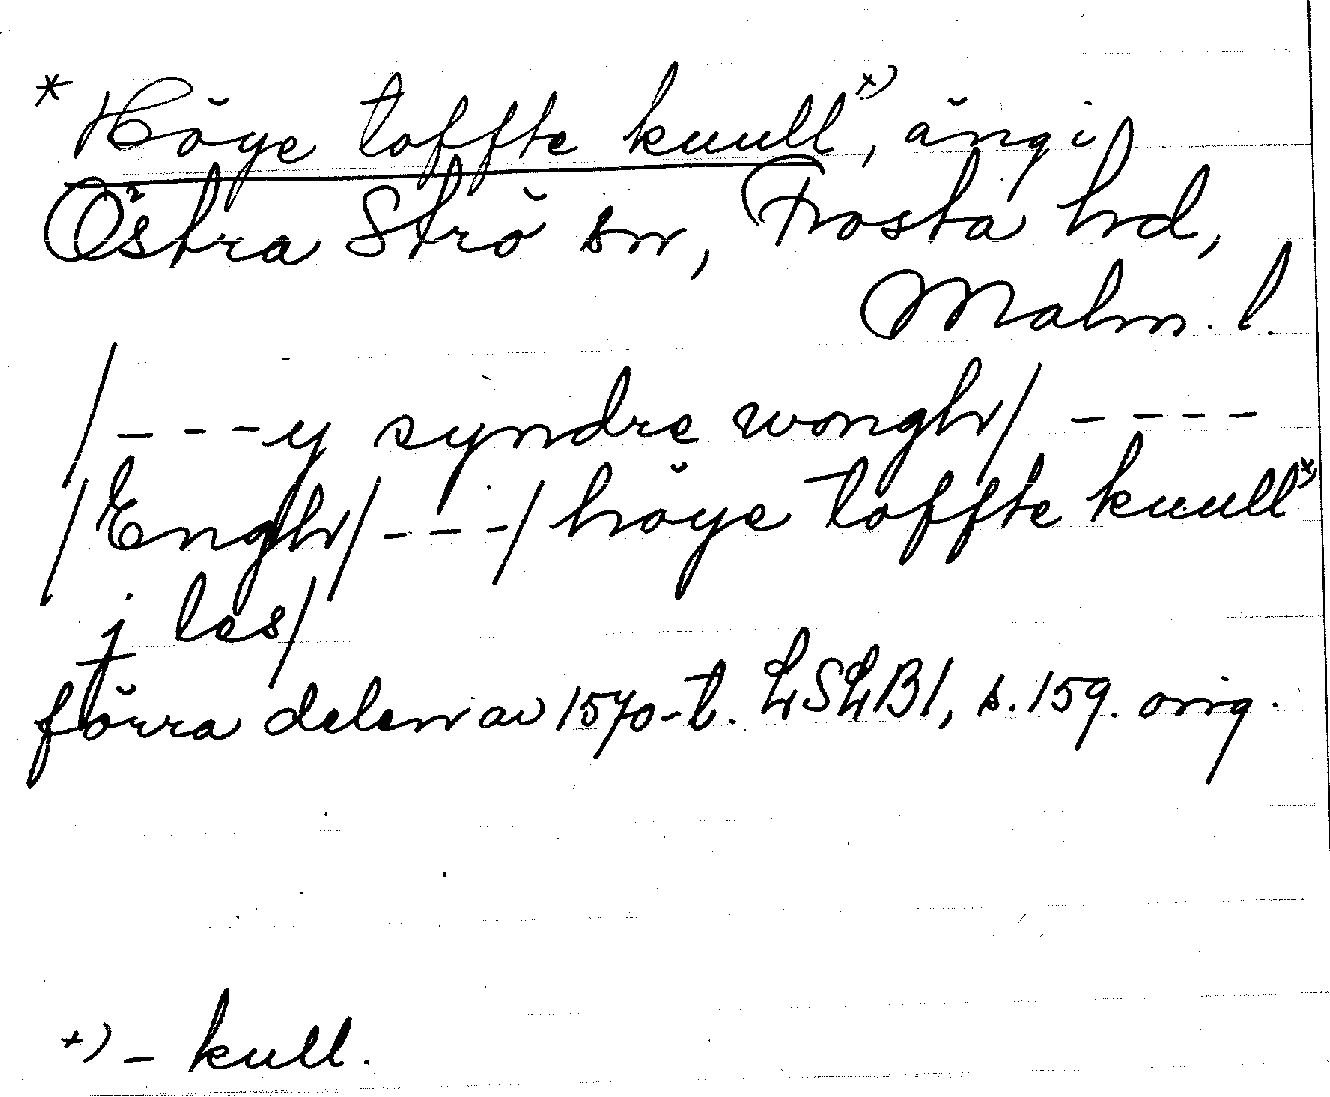 * Höye toffte kuull*), äng i
Östra Strö sn, Frosta hd,
Malm. l.
/----y syndre wongh/ ----
/Engh/---/ höye toffte kuull*)
j les/
förra delen av 1570-t. LSLB1, s. 159. orig.
*) - kull.